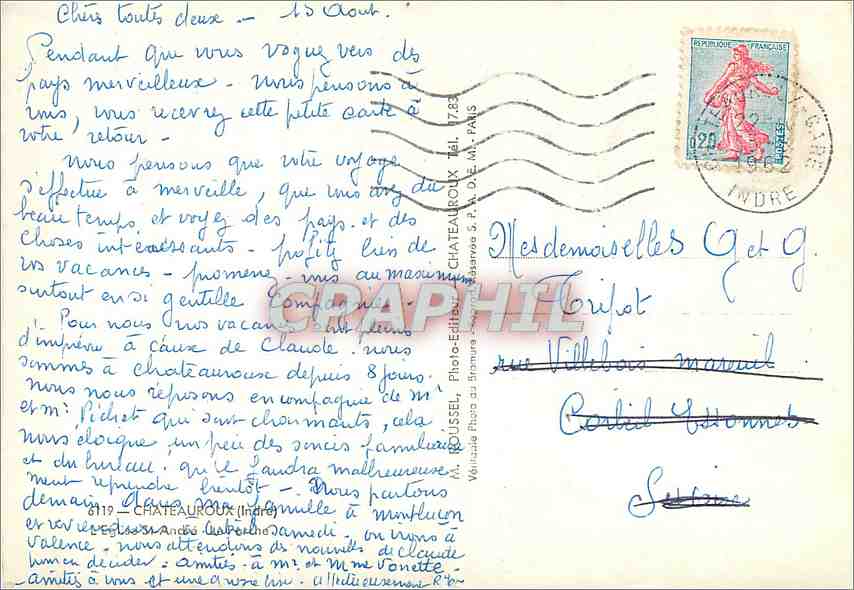 Chers toutes deux - 13 Août.
Pendant que vous voguez vers des
pays merveilleux - nous pensons à
vous, vous recevrez cette petite carte à
votre retour -
Nous pensons que votre voyage
s'effectue à merveille, que vous avez du
beau temps, et voyez des pays et des
choses intéressants - profitez bien de
vos vacances - promenez-vous au maximum
surtout en si gentille compagnie -
Pour nous nos vacances sont pleins
d'imprévu à cause de Claude. nous
sommes à chateauroux depuis 8 jours.
nous nous reposons en compagnie de Mr
et Me Pichet qui sont charmants, cela
nous éloigne un peu des soucis familiaux
et du bureau. qu'il faudra malheureuse
ment reprendre bientôt - Nous partons
demain dans ma famille à montluçon
et reviendrons samedi - on ira à
Valence - nous attendons des nouvelles de claude
pour décider - amitiés à Mr et Mme
amitiés à vous et une affectueusement
6119 — CHATEAUROUX (Indre)
L'Eglise St-André - Le Porche
M. ROUSSEL, Photo-Editeur, CHATEAUROUX Tél. 17.83
Véritable Photo au Bromure - Reproduction Réservée S. P. A. D. E. M. - PARIS
REPUBLIQUE FRANÇAISE
0,20
POSTES
GARE
1962
INDRE
Mesdemoiselles G et G.
Tripot
rue Villebois mareuil
Corbeil Essonnes
CPAPHIL